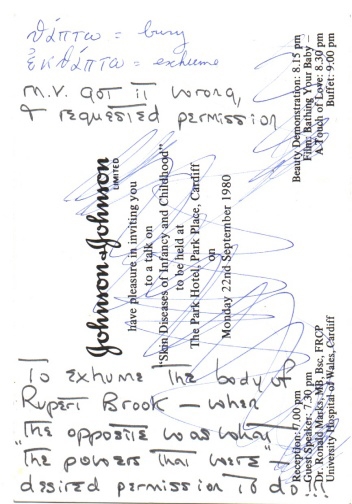 θάπτω = bury
ἐκθάπτω = exhume
M.V. got it wrong,
& requested permission
To exhume the body of
Rupert Brook — when
"The opposite was what
"the powers that were"
desired permission to do!...
Johnson & Johnson
LIMITED
have pleasure in inviting you
to a talk on
"Skin Diseases of Infancy and Childhood"
to be held at
The Park Hotel, Park Place, Cardiff
on
Monday 22nd September 1980
Reception: 7.00 pm
Guest Speaker: 7.30 pm
Dr. Ronald Marks, MB, Bsc, FRCP
University Hospital of Wales, Cardiff
Beauty Demonstration: 8.15 pm
Film: Bathing Your Baby –
A Touch of Love: 8.30 pm
Buffet: 9:00 pm